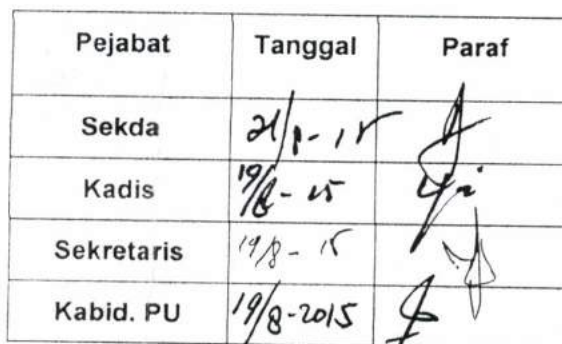 Pejabat Tanggal Paraf
Sekda 21/8-15
Kadis 19/8-15
Sekretaris 19/8-15
Kabid. PU 19/8-2015